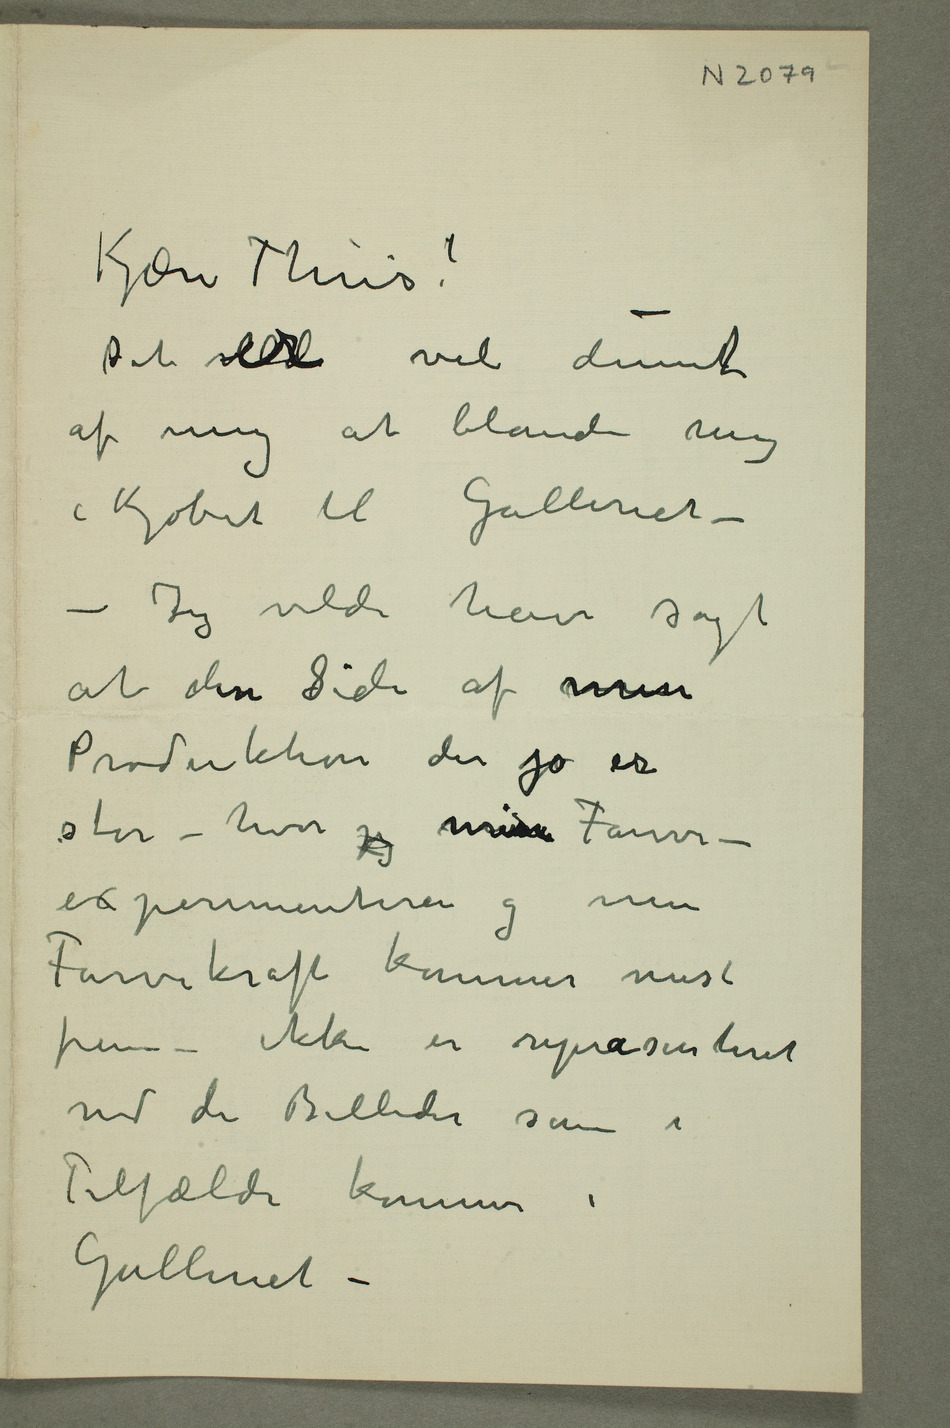 N 2079
Kjære Thiis!
Det vel dumt
af mig at blande mig
i Kjøbet til Galleriet –
– Jeg vilde have sagt
at den Side af min
Produktion der jo er
stor – hvor jeg mine Farve–
experimenterer og min
Farvekraft kommer mest
frem – ikke er repræsenteret
ved de Billeder som i
Tilfælde kommer i
Galleriet –